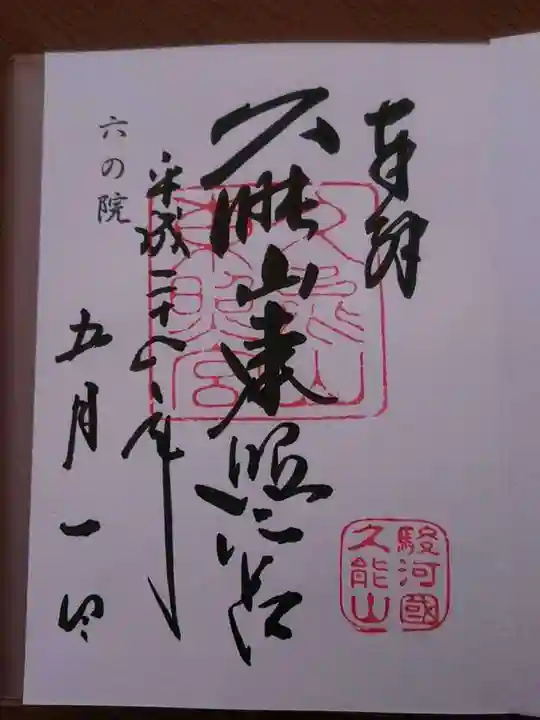 奉拝
久能山東照宮
平成二十八年
五月一日
六の院
久能山東照宮
駿河國
久能山